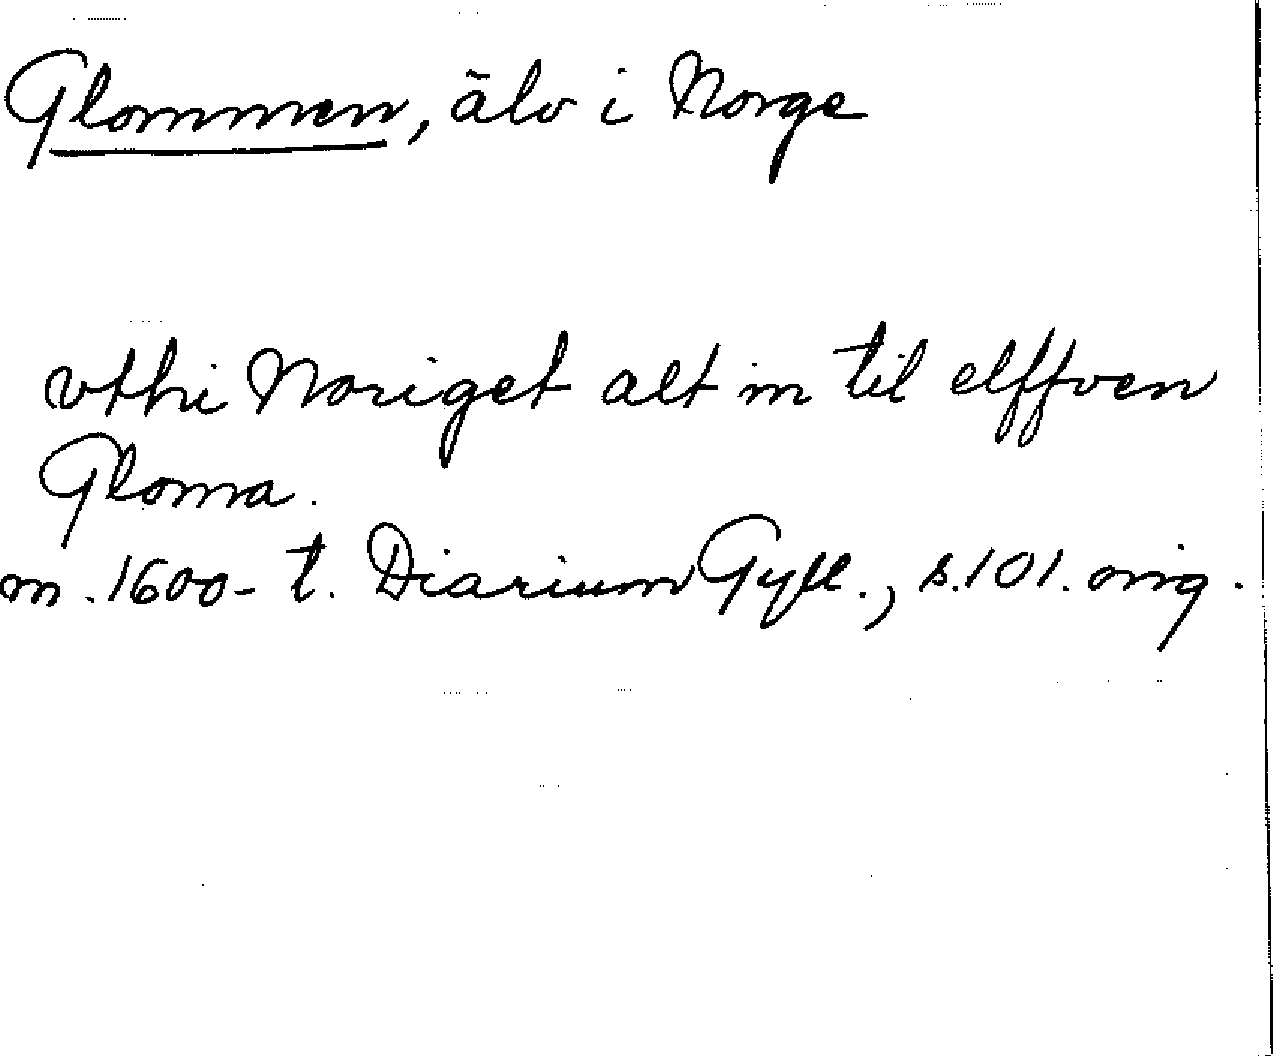 Glommen, älv i Norge
vthi Noriget alt in til elffven
Gloma.
m. 1600-t. Diarium Gyll., s. 101. orig.